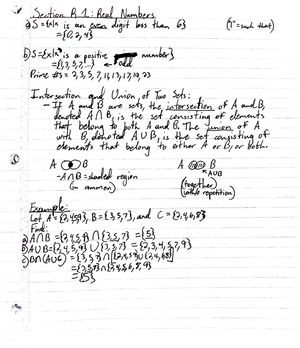 Section R.1: Real Numbers
a) S={x|x is an even digit less than 6} ("|"=such that)
={0,2,4}
b) S={x|x is a positive number}
={1,3,5,7...} ← odd
Prime #s = 2,3,5,7,11,13,17,19,23
Intersection and Union of Two Sets:
- If A and B are sets, the intersection of A and B,
denoted A∩B, is the set consisting of elements
that belong to both A and B. The union of A
with B, denoted A∪B, is the set consisting of
elements that belong to either A or B, or both.
A B A B
-A∩B=shaded region A∪B
(in common) (together)
(w/o repetition)
Example:
Let A={2,4,5,9}, B={3,5,7}, and C={2,4,6,8}
Find:
a) A∩B={2,4,5,9}∩{3,5,7}={5}
b) A∪B={2,4,5,9}∪{3,5,7}={2,3,4,5,7,9}
c) B∩(A∪C)={3,5,7}∩[{2,4,5,9}∪{2,4,6,8}]
={3,5,7}∩{2,4,5,6,8,9}
={5}